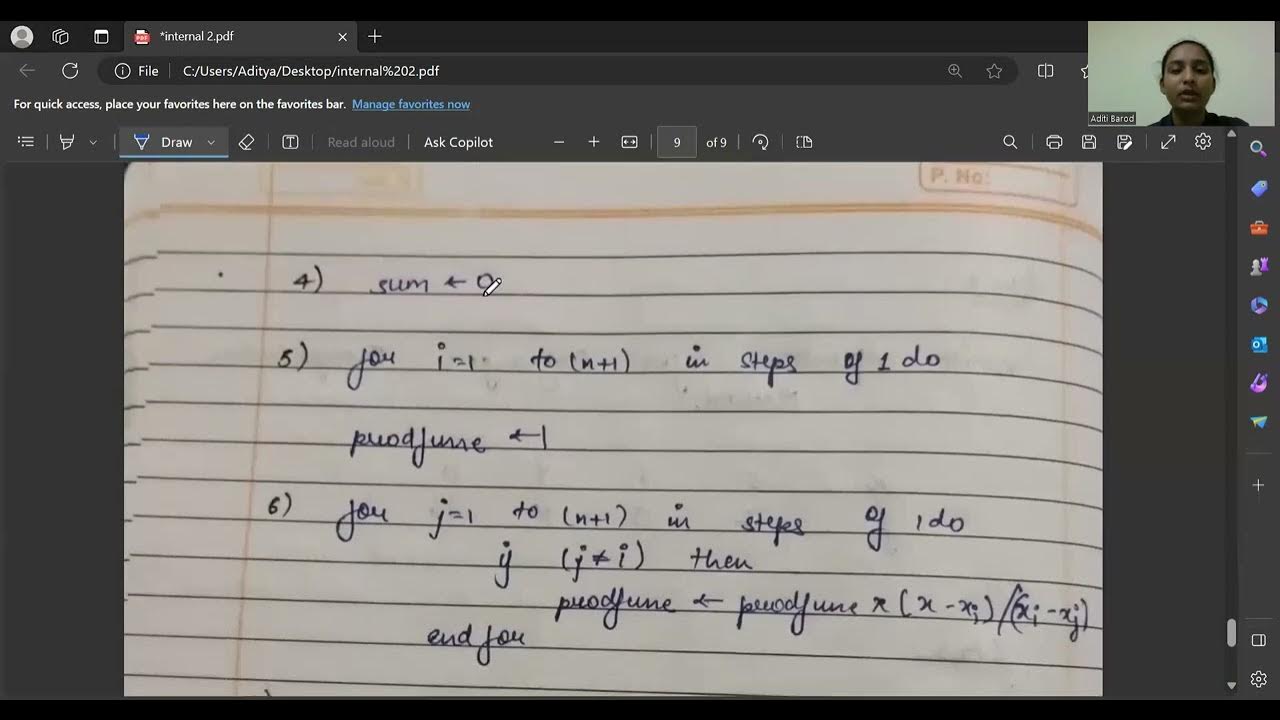 *internal 2.pdf
File C:/Users/Aditya/Desktop/internal%202.pdf
For quick access, place your favorites here on the favorites bar. Manage favorites now
Aditi Barod
Draw Read aloud Ask Copilot 9 of 9
P. No:
4) sum ← 0
5) for i=1 to (n+1) in steps of 1 do
prodfunc ← 1
6) for j=1 to (n+1) in steps of 1 do
if (j≠i) then
prodfunc ← prodfunc x (x - xj) / (xi - xj)
end for